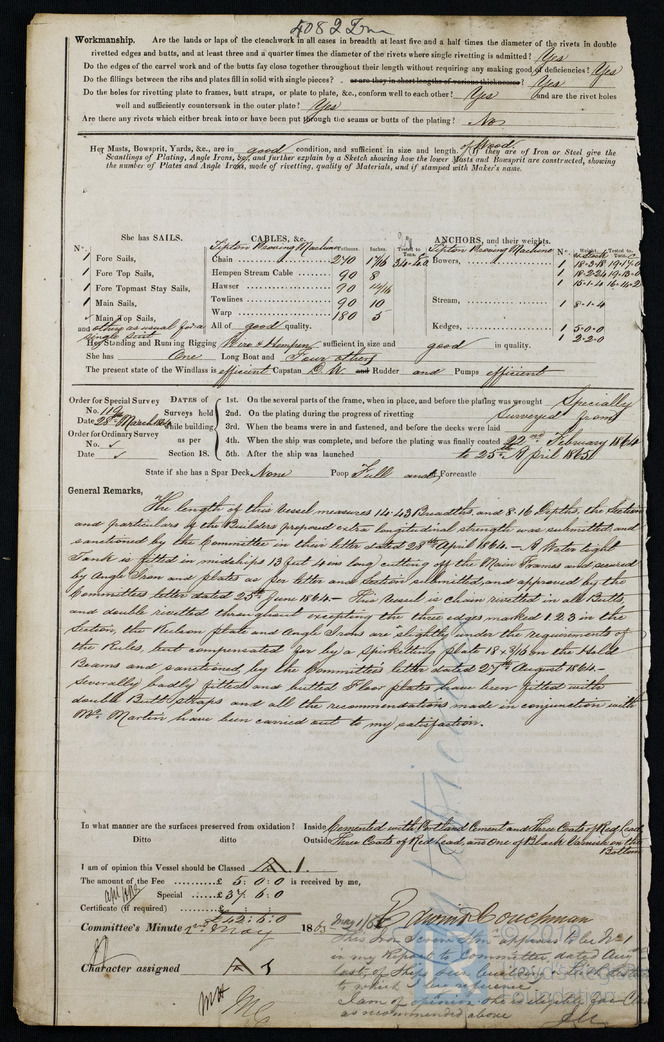 4082 Irn
Workmanship. Are the lands or laps of the clenchwork in all cases in breadth at least five and a half times the diameter of the rivets in double
rivetted edges and butts, and at least three and a quarter times the diameter of the rivets where single rivetting is admitted? Yes
Do the edges of the carvel work and of the butts fay close together throughout their length without requiring any making good of deficiencies? Yes
Do the fillings between the ribs and plates fill in solid with single pieces? or are they in short lengths of various thicknesses? Yes
Do the holes for rivetting plate to frames, butt straps, or plate to plate, &c., conform well to each other? Yes and are the rivet holes
well and sufficiently countersunk in the outer plate? Yes
Are there any rivets which either break into or have been put through the seams or butts of the plating? No
Her Masts, Bowsprit, Yards, &c., are in good condition, and sufficient in size and length. of Wood (If they are of Iron or Steel give the
Scantlings of Plating, Angle Irons, &c., and further explain by a Sketch showing how the lower Masts and Bowsprit are constructed, showing
the number of Plates and Angle Iron, mode of rivetting, quality of Materials, and if stamped with Maker's name.
She has SAILS. CABLES, &c. ANCHORS, and their weights.
N°. Tipton Proving Machine Fathoms. Inches. Tested to Tons. Tipton Proving Machine N°. Weight. Tested to Tons.
1 Fore Sails, Chain 270 1 7/16 34 Bowers, 1 18-3-18
1 Fore Top Sails, Hempen Stream Cable 90 8 1 18-2-24 19-13-0
1 Fore Topmast Stay Sails, Hawser 90 1 15-1-4
1 Main Sails, Towlines 90 10 Stream, 1 8-1-4
Main Top Sails, Warp 180 5
and others as usual for a All of good quality. Kedges, 1 5-0-0
1 2-2-0
Her Standing and Running Rigging Wire & Hempen sufficient in size and good in quality.
She has One Long Boat and Four others
The present state of the Windlass is efficient Capstan Do and Rudder and Pumps efficient
Order for Special Survey No. 119
Date 28th March 1864
Order for Ordinary Survey
No. ✓
Date ✓
DATES of Surveys held while building, as per Section 18.
1st. On the several parts of the frame, when in place, and before the plating was wrought Specially
2nd. On the plating during the progress of rivetting Surveyed from
3rd. When the beams were in and fastened, and before the decks were laid
4th. When the ship was complete, and before the plating was finally coated 22nd February 1864
5th. After the ship was launched to 25th April 1865
State if she has a Spar Deck, None Poop Full and Forecastle
General Remarks,
The length of this Vessel measures 14.43 Breadths, and 8.16 Depths, the Section
and particulars of the Builders proposed extra longitudinal strength was submitted and
sanctioned by the Committee in their letter dated 28th April 1864 – A Water tight
Tank is fitted in midships 13 feet 4 ins long cutting off the Main Frames and secured
by Angle Iron and plates as per letter and Section submitted and approved by the
Committees letter dated 25th June 1864 – This Vessel is chain rivetted in all Butts,
and double rivetted throughout excepting the three edges marked 1 2 3 in the
Section, the Keelson plate and Angle Irons are slightly under the requirements of
the Rules but compensated for by a Spirketting plate 18 x 3/16 on the Hold
Beams and sanctioned by the Committee's letter dated 27th August 1864 –
Severally badly fitted and butted Floor plates have been fitted with
double Butt straps and all the recommendations made in conjunction with
Mr. Martin have been carried out to my satisfaction.
In what manner are the surfaces preserved from oxidation? Inside Cemented with Portland Cement and Three Coats of Red Lead
Ditto ditto Outside Three Coats of Red Lead, and One of Black Varnish on the
Bottom
I am of opinion this Vessel should be Classed A 1.
The amount of the Fee £ 5 : 0 : 0 is received by me,
Special £ 37 : 6 : 0
Certificate (if required) £ : :
£42 : 6 : 0
Edwin Couchman
Committee's Minute 2nd May 1865
This Iron Screw Str appears to be No 1
in my Report to Committee dated Aug
last, of Ships building in this district
to which I beg reference.
I am of opinion she is eligible for Class
as recommended above
Character assigned A 1
© 2019
Foundation